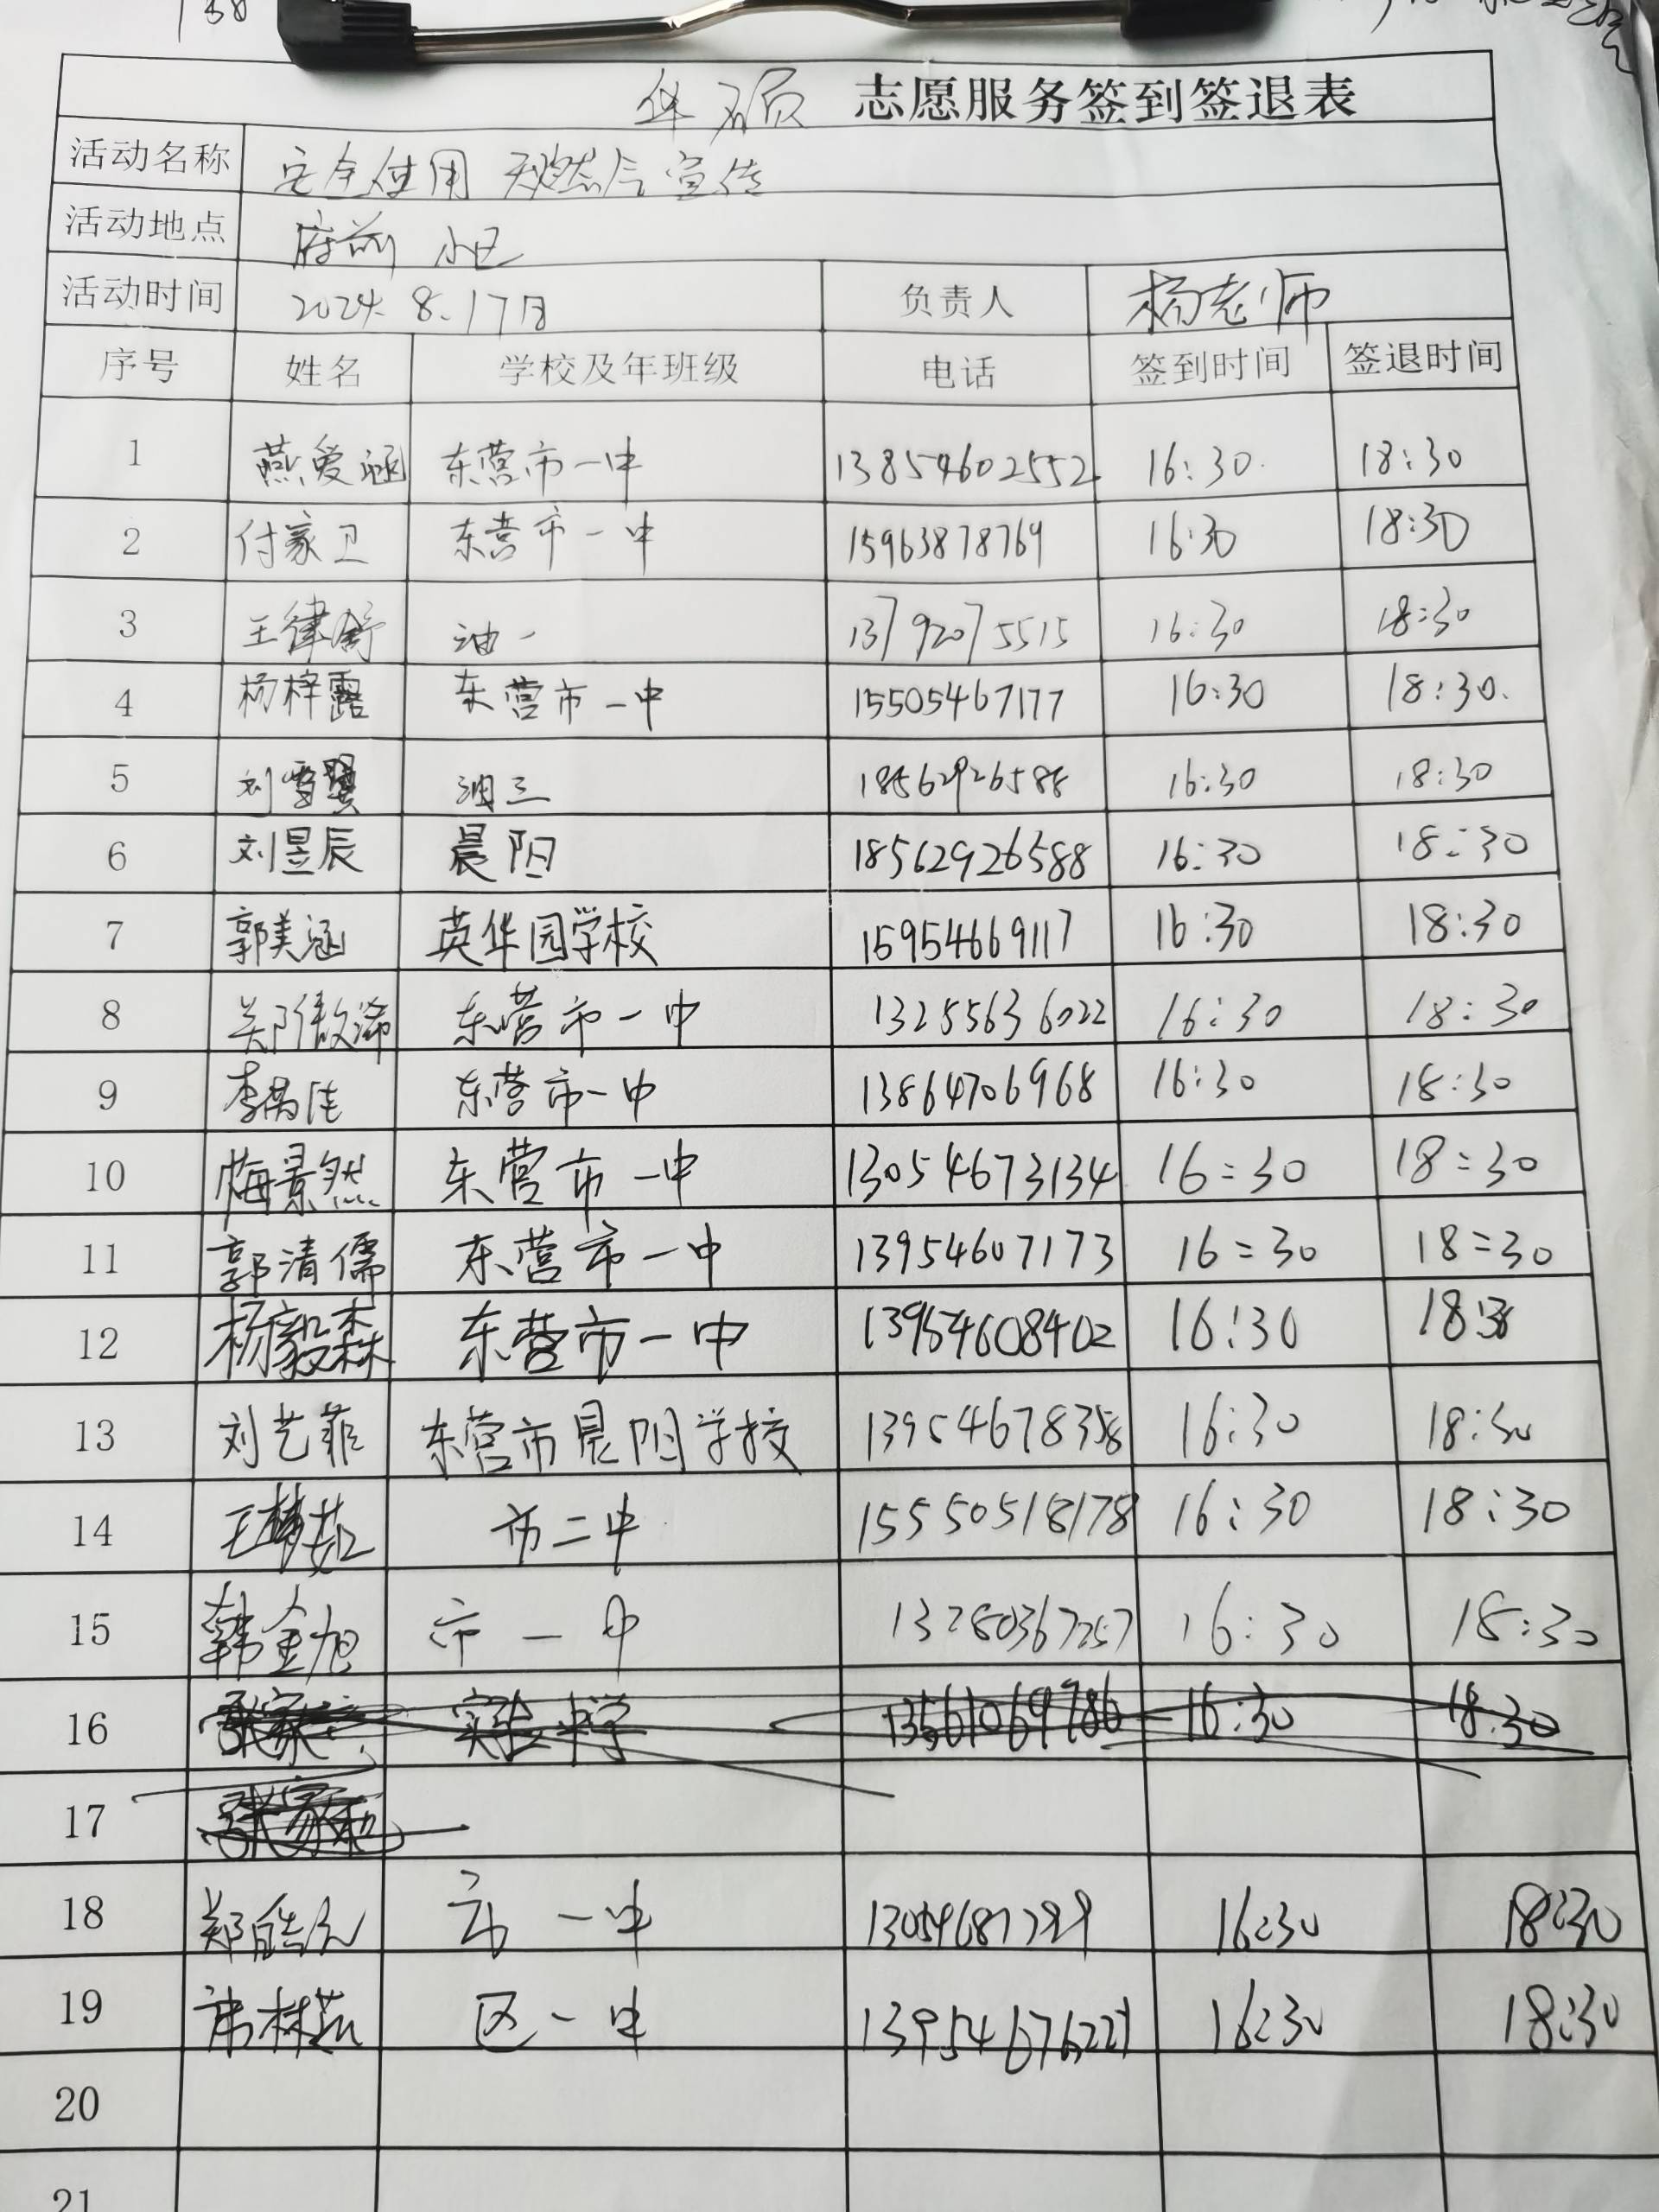 华硕 志愿服务签到签退表
活动名称 安全使用 天燃气宣传
活动地点 府前 小区
活动时间 2024. 8. 17日 负责人 杨老师
序号 姓名 学校及年班级 电话 签到时间 签退时间
1 燕爱涵 东营市一中 13854602552 16:30 18:30
2 付家卫 东营市一中 15963878769 16:30 18:30
3 王律舒 油一 13792075515 16:30 18:30
4 杨梓露 东营市一中 15505467177 16:30 18:30.
5 刘雪 油三 18562926588 16:30 18:30
6 刘昱辰 晨阳 18562926588 16:30 18:30
7 郭美涵 英华园学校 15954669117 16:30 18:30
8 郑傲浠 东营市一中 13255636022 16:30 18:30
9 李 佳 东营市一中 13864706968 16:30 18:30
10 梅景然 东营市一中 13054673134 16:30 18:30
11 郭清儒 东营市一中 13954607173 16:30 18:30
12 杨毅森 东营市一中 13954608402 16:30 18:30
13 刘艺菲 东营市晨阳学校 13954678358 16:30 18:30
14 王梦茹 市二中 15550518178 16:30 18:30
15 韩金旭 市一中 13280367257 16:30 18:30
16 张家 实验中学 13561069786 16:30 18:30
17 张家和
18 郑皓元 市一中 16:30 18:30
19 林茹 区一中 13954676221 16:30 18:30
20
21